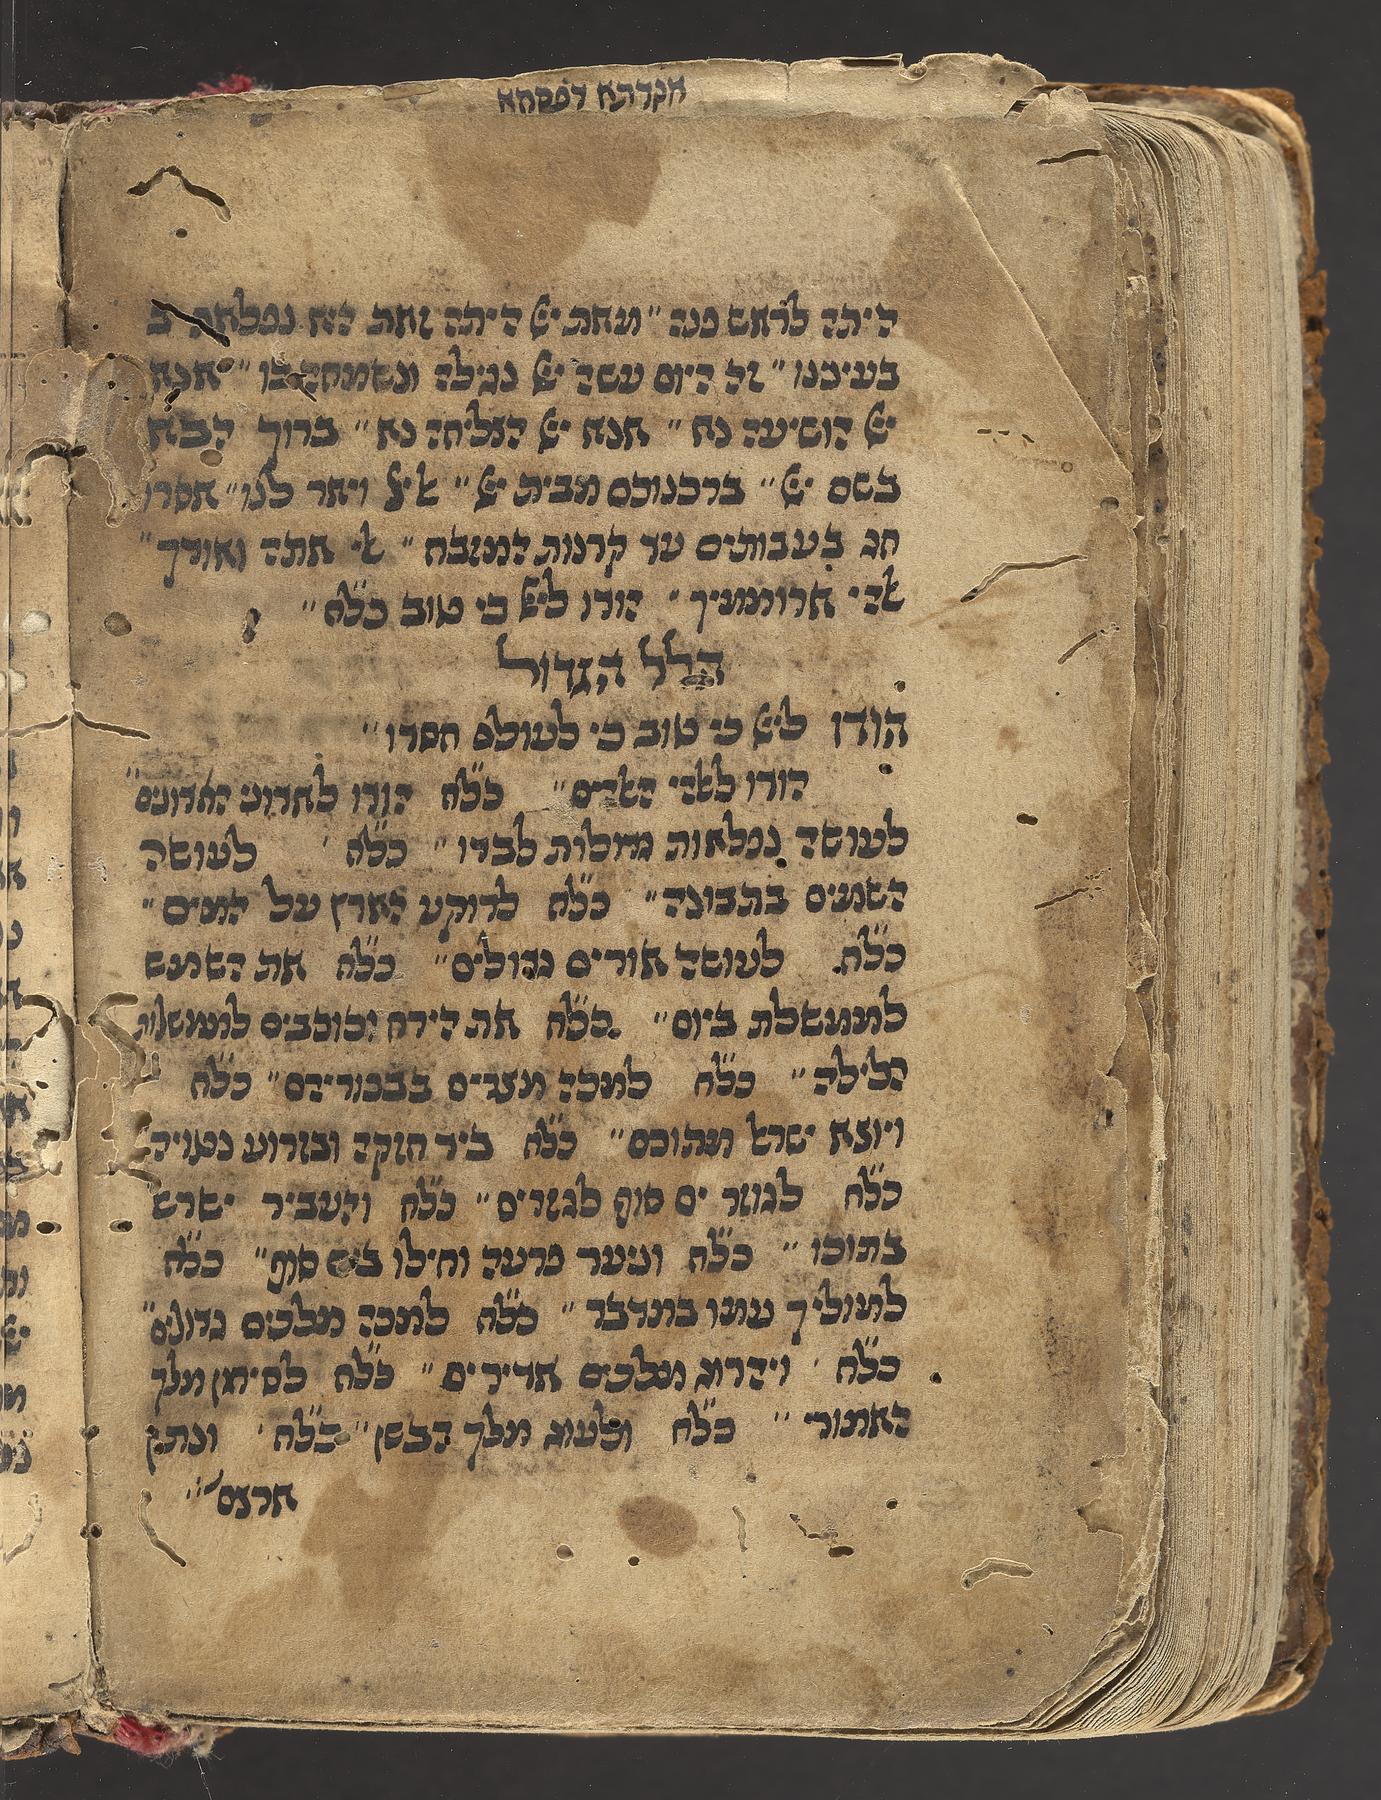 אגדתא דפסחא
היתה לראש פנה" מאת יי היתה זאת היא נפלאת ב
בעינינו" זה היום עשה יי נגילה ונשמחה בו" אנא
יי הושיעה נא" אנא יי הצליחה נא" ברוך הבא
בשם יי" ברכנוכם מבית יי" ויאר לנו" אסרו
חג בעבותים עד קרנות המזבח" אתה ואודך"
ארוממיך" הודו ליי כי טוב כל״ח"
הלל הגדול
הודו ליי כי טוב כי לעולם חסדו"
הודו כל״ח הודו לאדוני האדונים"
לעושה נפלאות גדולות לבדו" כל״ח לעושה
השמים בתבונה" כל״ח לרוקע הארץ על המים"
כל״ח לעושה אורים גדולים" כל״ח את השמש
לממשלת ביום" כל״ח את הירח וכוכבים לממשלות
הלילה" כל״ח למכה מצרים בבכוריהם" כל״ח
ויוצא ישראל מתוכם" כל״ח ביד חזקה ובזרוע נטויה
כל״ח לגוזר ים סוף לגזרים" כל״ח והעביר
בתוכו" כל״ח וניער פרעה וחילו בים סוף" כל״ח
למוליך עמו במדבר" כל״ח למכה מלכים גדולים"
כל״ח ויהרוג מלכים אדירים" כל״ח לסיחון מלך
האמורי" כל״ח ולעוג מלך הבשן" כל״ח ונתן
ארצם"